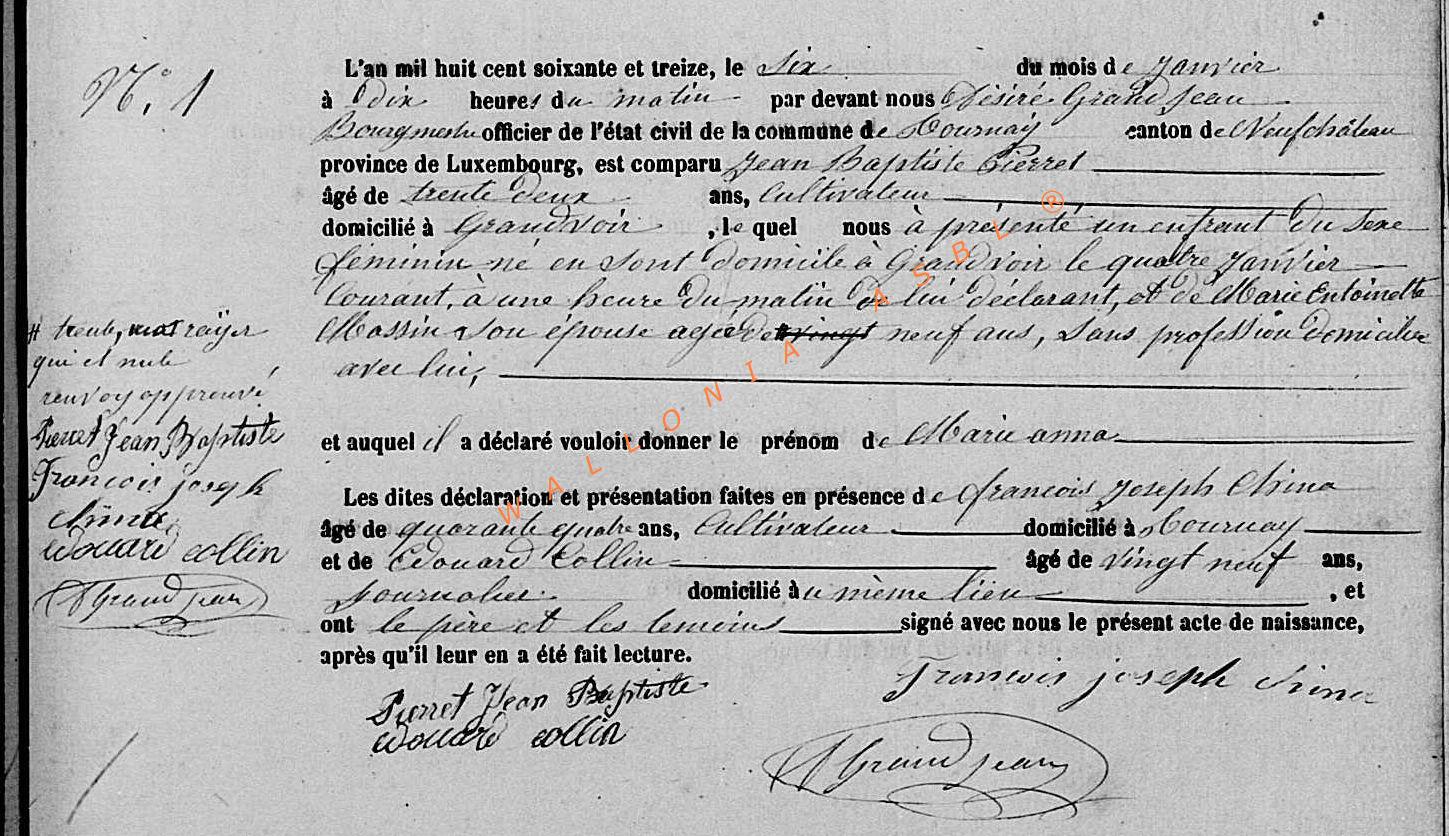 N.° 1
L'an mil huit cent soixante et treize, le six du mois de Janvier
à dix heures du matin par devant nous Désiré GrandJean
Bourgmestre officier de l'état civil de la commune de Tournay canton de Neufchâteau
province de Luxembourg, est comparu Jean Baptiste Pierret
âgé de trente deux ans, Cultivateur
domicilié à Grandvoir, lequel nous à présenté un enfrant du sexe
féminin né en sont domicile à Grandvoir le quatre Janvier
Courant, à une heure du matin de lui déclarant, et de Marie Entoinette
Massin son épouse agée de vingt neuf ans, sans profession domiciliée
avec lui,
# trente, mot rayer
qui et nule
renvoy approuvé
Pierret Jean Baptiste
François joseph
china
edouard collin
D GrandJean
et auquel il a déclaré vouloir donner le prénom de Marie anna
Les dites déclaration et présentation faites en présence de françois Joseph China
âgé de quarante quatre ans, Cultivateur domicilié à Tournay
et de Edouard Collin âgé de vingt neuf ans,
Journalier domicilié au même lieu, et
ont le père et les temoins signé avec nous le présent acte de naissance,
après qu'il leur en a été fait lecture.
Pierret Jean Baptiste
François joseph china
edouard collin
D GrandJean
WALLONIA ASBL ®